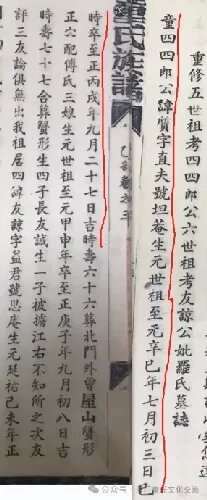 重修五世祖考四四郎公六世祖考友諒公妣羅氏墓誌
童四四郎公諱賢字直夫號坦菴生元世祖至元辛巳年七月初三日巳
童氏族譜
時卒至正丙戌年九月二十七日吉時壽六十六葬北門外曾屋山蟹形
正穴配傅氏三娘生元世祖至元甲申年卒至正庚子年九月初八日吉
時壽七十七合葬蟹形生四子長友誠生一子被擄江右不知所之次友
評三友諭俱無出我祖居四諱友諒字益君號思庵生元延祐己未年正
公众号 · 文化交流